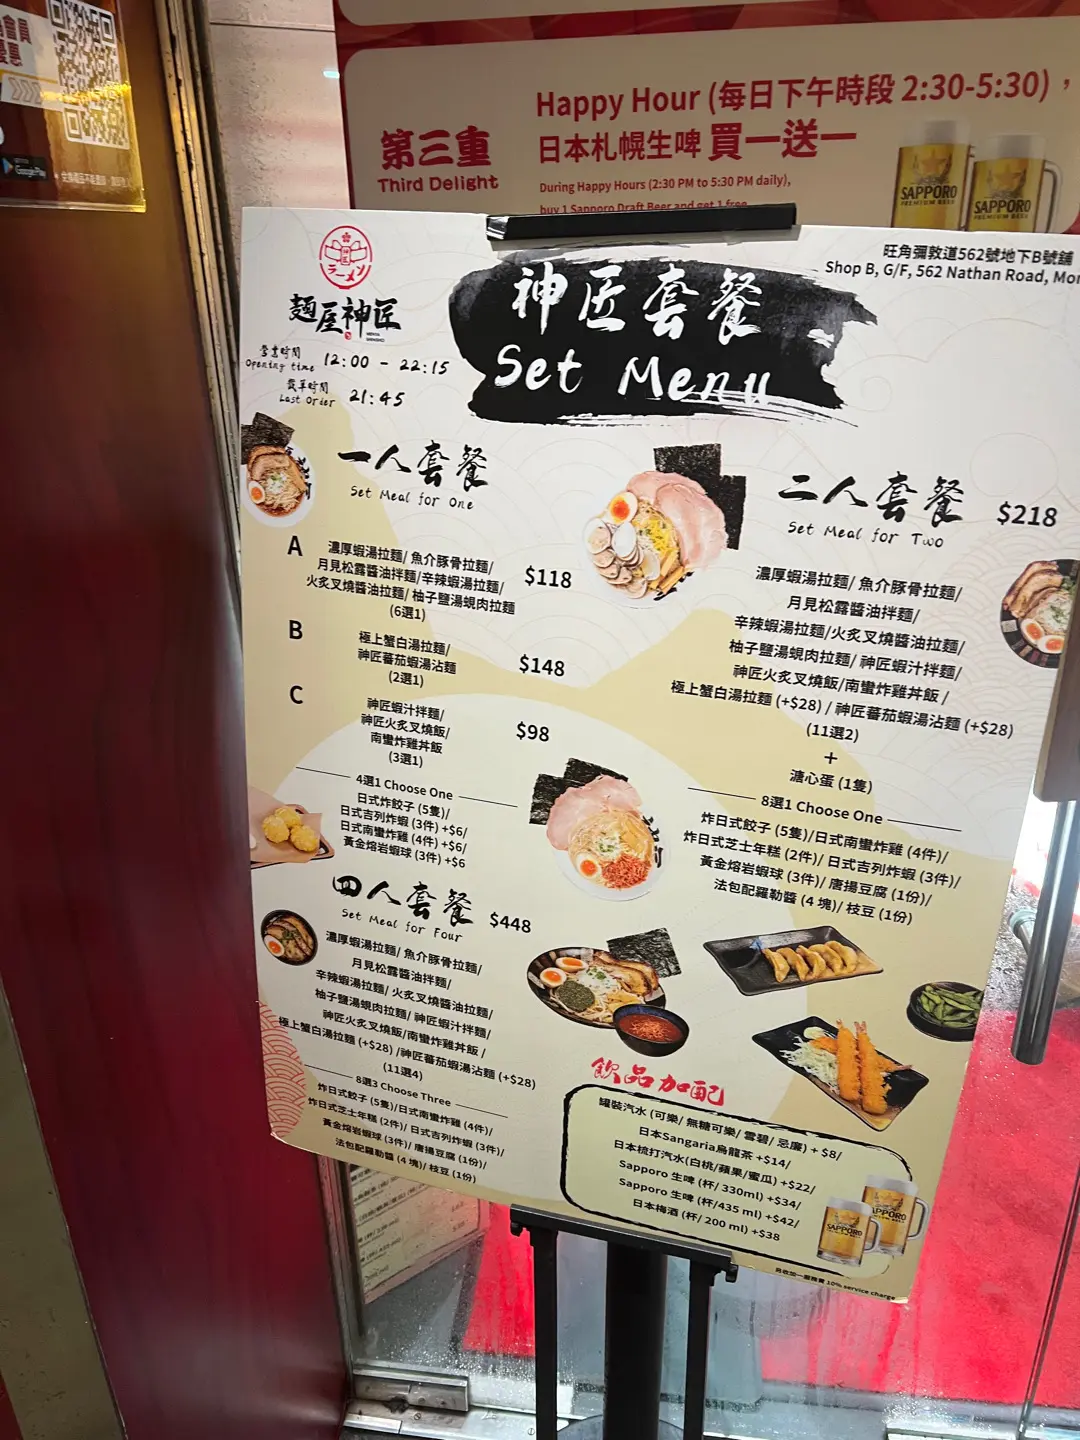 會員
優惠
Google Play
Happy Hour (每日下午時段 2:30-5:30)，
日本札幌生啤 買一送一
第三重
Third Delight
During Happy Hours (2:30 PM to 5:30 PM daily),
buy 1 Sapporo Draft Beer and get 1 free
SAPPORO
PREMIUM BEER
SAPPORO
PREMIUM BEER
旺角彌敦道562號地下B號舖
Shop B, G/F, 562 Nathan Road, Mon
ラーメン
麵屋神匠
神匠套餐
Set Menu
營業時間
Opening time 12:00 - 22:15
截單時間
Last Order 21:45
一人套餐
Set Meal for One
A
濃厚蝦湯拉麵/ 魚介豚骨拉麵/
月見松露醬油拌麵/辛辣蝦湯拉麵/
火炙叉燒醬油拉麵/ 柚子鹽湯蜆肉拉麵
(6選1)
$118
B
極上蟹白湯拉麵/
神匠蕃茄蝦湯沾麵
(2選1)
$148
C
神匠蝦汁拌麵/
神匠火炙叉燒飯/
南蠻炸雞丼飯
(3選1)
$98
4選1 Choose One
日式炸餃子 (5隻)/
日式吉列炸蝦 (3件) +$6/
日式南蠻炸雞 (4件) +$6/
黃金熔岩蝦球 (3件) +$6
二人套餐 $218
Set Meal for Two
濃厚蝦湯拉麵/ 魚介豚骨拉麵/
月見松露醬油拌麵/
辛辣蝦湯拉麵/火炙叉燒醬油拉麵/
柚子鹽湯蜆肉拉麵/ 神匠蝦汁拌麵/
神匠火炙叉燒飯/南蠻炸雞丼飯 /
極上蟹白湯拉麵 (+$28) / 神匠蕃茄蝦湯沾麵 (+$28)
(11選2)
+
溏心蛋 (1隻)
8選1 Choose One
炸日式餃子 (5隻)/日式南蠻炸雞 (4件)/
炸日式芝士年糕 (2件)/ 日式吉列炸蝦 (3件)/
黃金熔岩蝦球 (3件)/ 唐揚豆腐 (1份)/
法包配羅勒醬 (4 塊)/ 枝豆 (1份)
四人套餐 $448
Set Meal for Four
濃厚蝦湯拉麵/ 魚介豚骨拉麵/
月見松露醬油拌麵/
辛辣蝦湯拉麵/ 火炙叉燒醬油拉麵/
柚子鹽湯蜆肉拉麵/ 神匠蝦汁拌麵/
神匠火炙叉燒飯/南蠻炸雞丼飯 /
極上蟹白湯拉麵 (+$28) /神匠蕃茄蝦湯沾麵 (+$28)
(11選4)
8選3 Choose Three
炸日式餃子 (5隻)/日式南蠻炸雞 (4件)/
炸日式芝士年糕 (2件)/ 日式吉列炸蝦 (3件)/
黃金熔岩蝦球 (3件)/ 唐揚豆腐 (1份)/
法包配羅勒醬 (4 塊)/ 枝豆 (1份)
飲品加配
罐裝汽水 (可樂/ 無糖可樂/ 雪碧/ 忌廉) + $8/
日本Sangaria烏龍茶 +$14/
日本梳打汽水(白桃/蘋果/蜜瓜) +$22/
Sapporo 生啤 (杯/ 330ml) +$34/
Sapporo 生啤 (杯/435 ml) +$42/
日本梅酒 (杯/ 200 ml) +$38
SAPPORO
SAPPORO
另收加一服務費 10% service charge